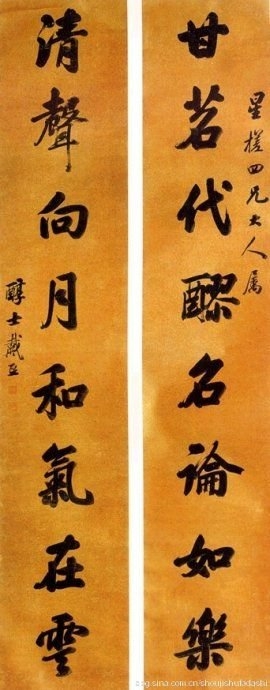 星槎四兄大人属
甘茗代醪名論如樂
清聲向月和氣在雲
醇士戴熙
blog.sina.com.cn/shoujishufadashi